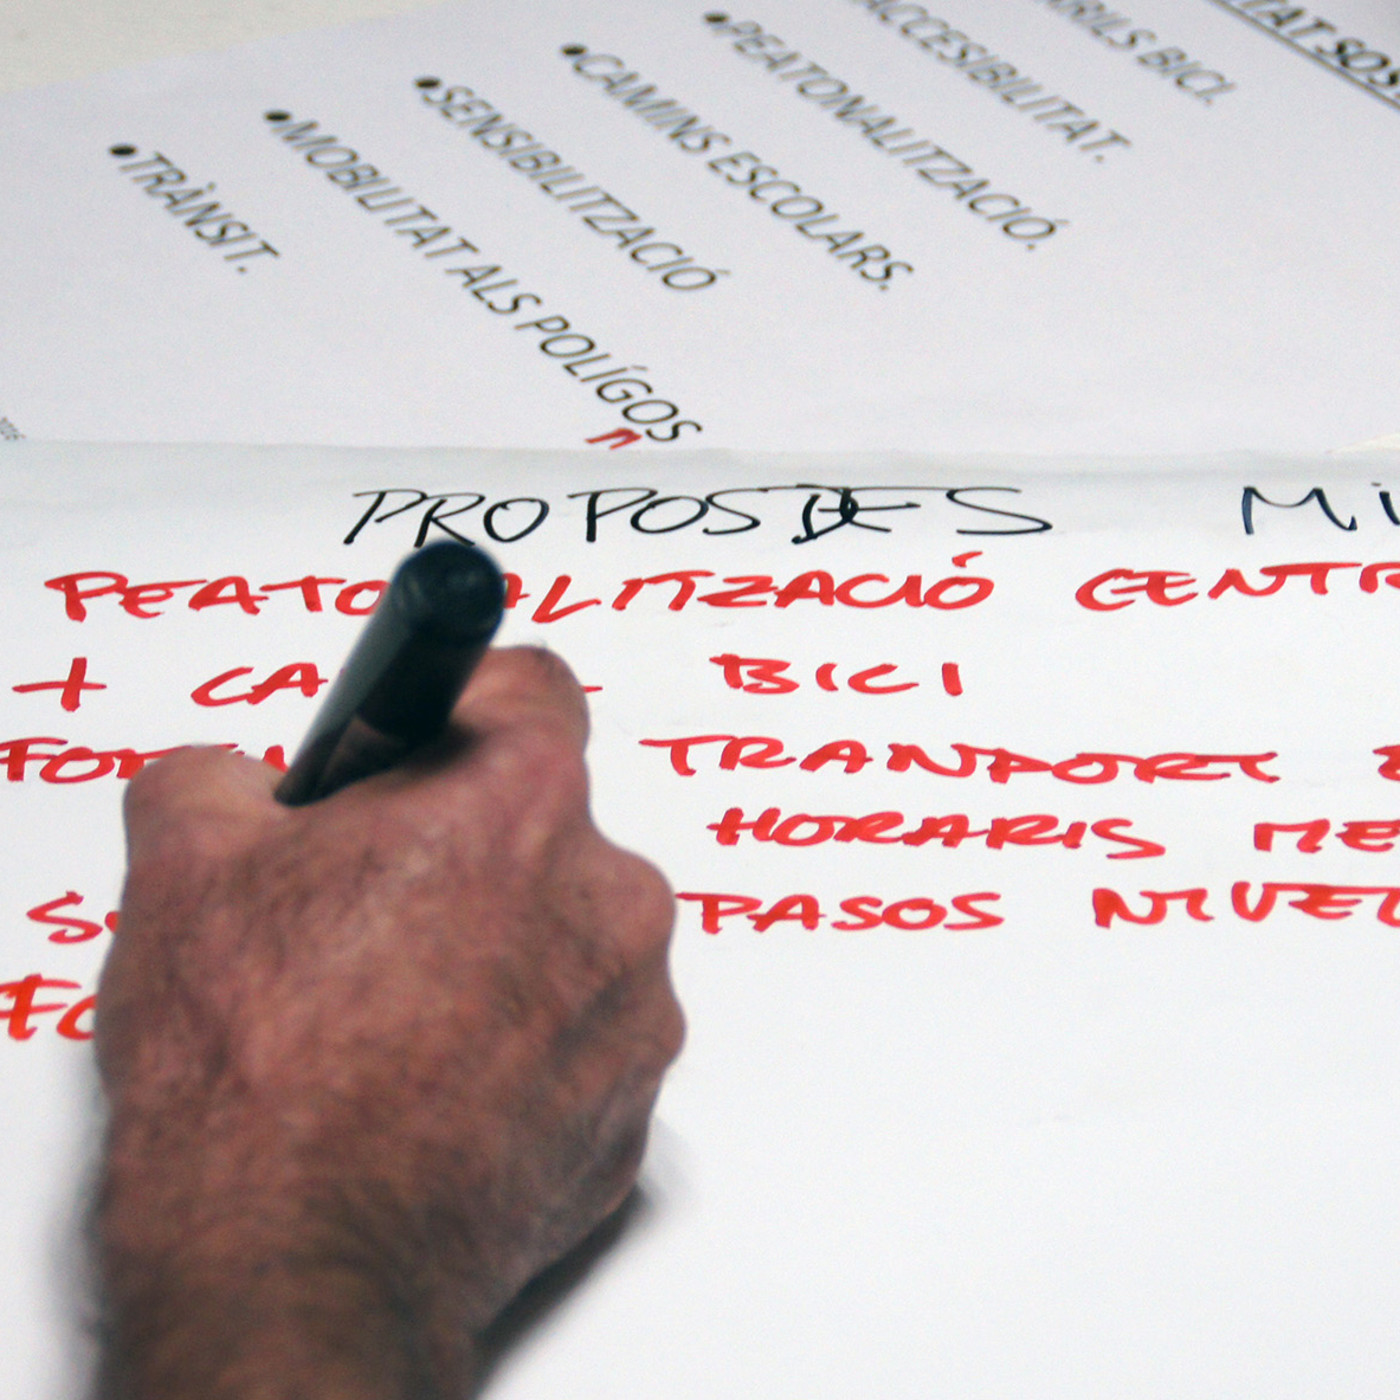 TAT SOS
ARILS BICI.
ACCESIBILITAT.
•PEATONALITZACIÓ.
•CAMINS ESCOLARS.
•SENSIBILITZACIÓ
•MOBILITAT ALS POLÍGOS
n
•TRÀNSIT.
2016
PROPOSTES MI
PEATO ALITZACIÓ CENTR
+ CA BICI
FO TRANPORT
HORARIS ME
S PASOS NIVEL
FO